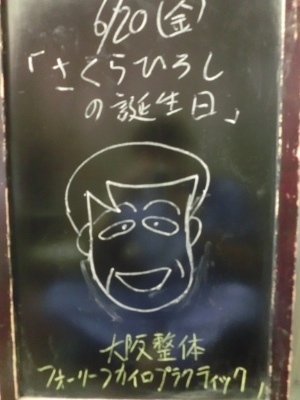 6/20(金)
「さくらひろし
の誕生日」
大阪整体
フォーリーフカイロプラクティック